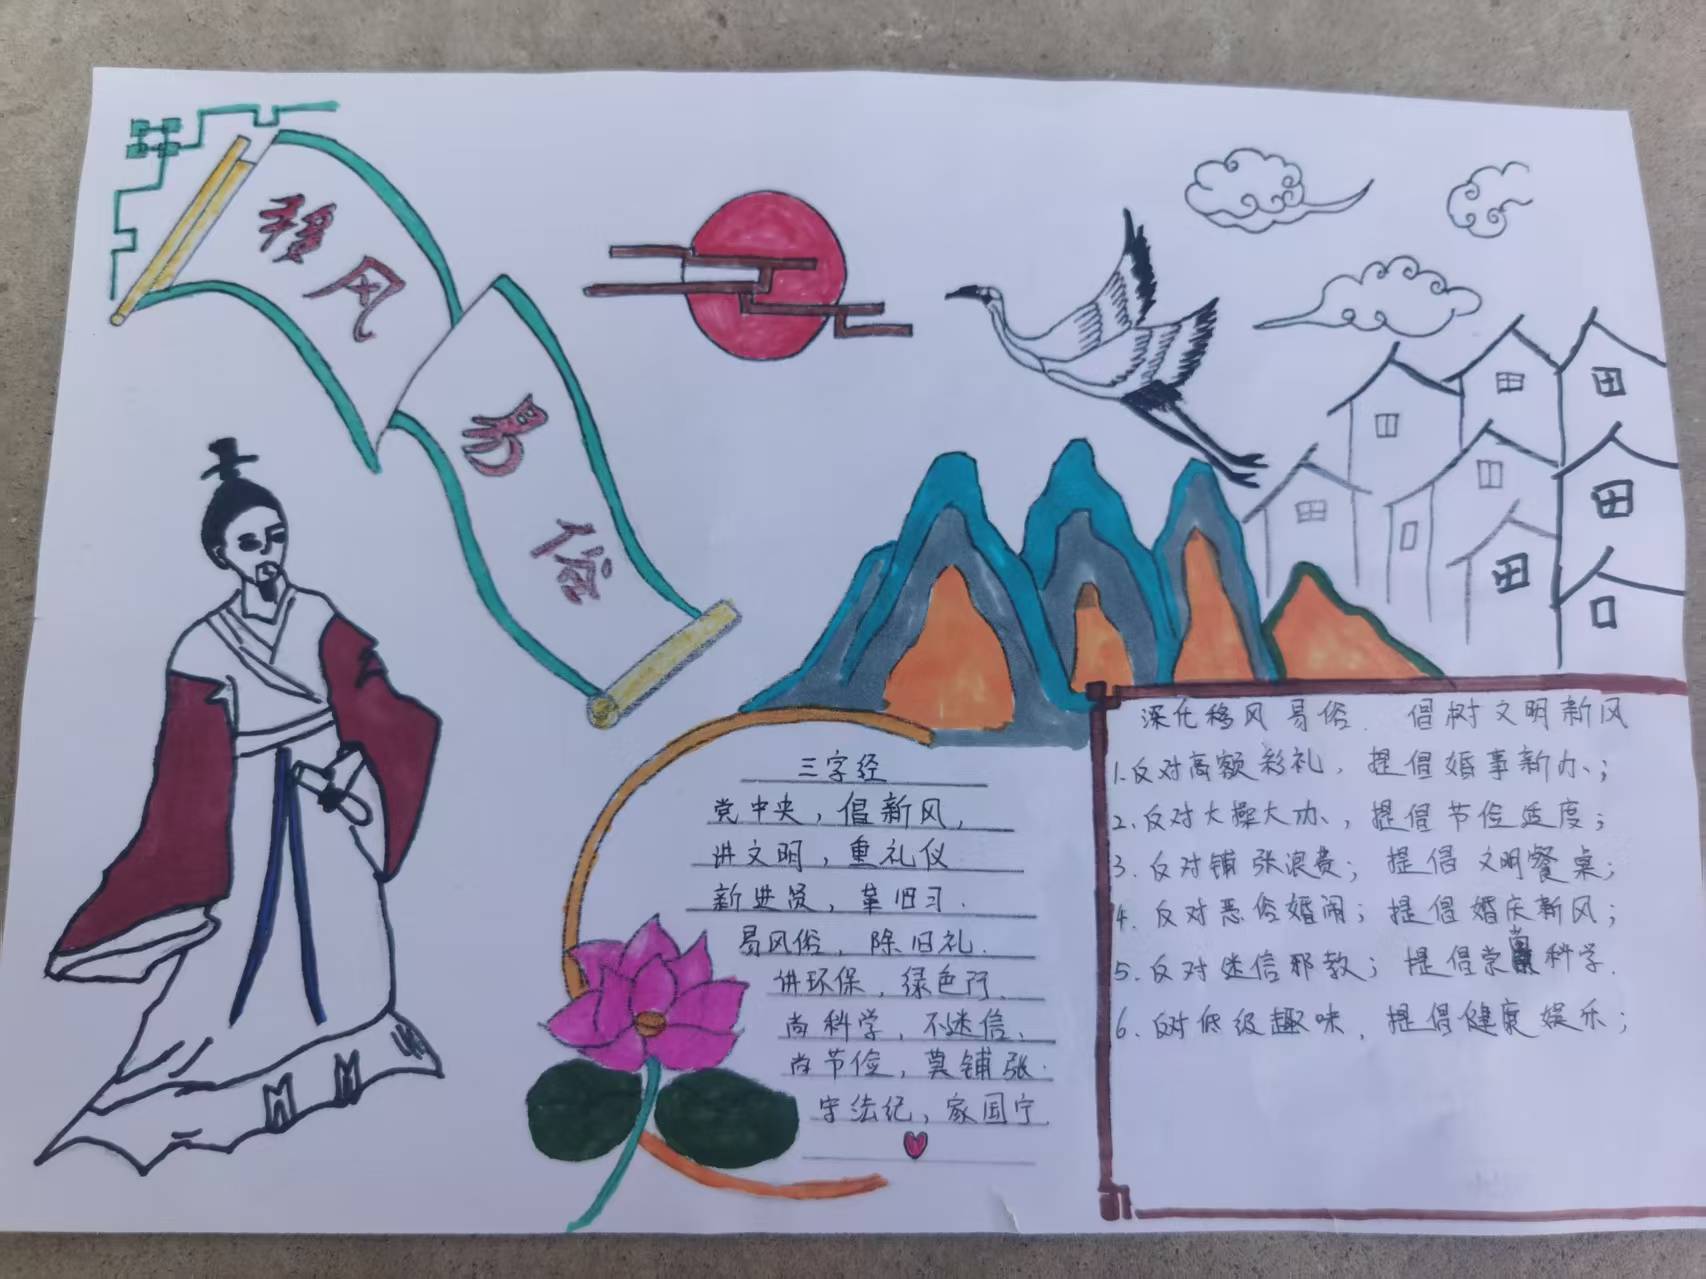 移风
易俗
三字经
党中央，倡新风，
讲文明，重礼仪
新进员，革旧习.
易风俗，除旧礼.
讲环保，绿色行.
尚科学，不迷信、
尚节俭，莫铺张.
守法纪，家国宁.
深化移风易俗. 倡树文明新风
1.反对高额彩礼，提倡婚事新办；
2.反对大操大办，提倡节俭适度；
3.反对铺张浪费；提倡文明餐桌；
4.反对恶俗婚闹；提倡婚庆新风；
5.反对迷信邪教；提倡崇尚科学.
6.反对低级趣味，提倡健康娱乐；